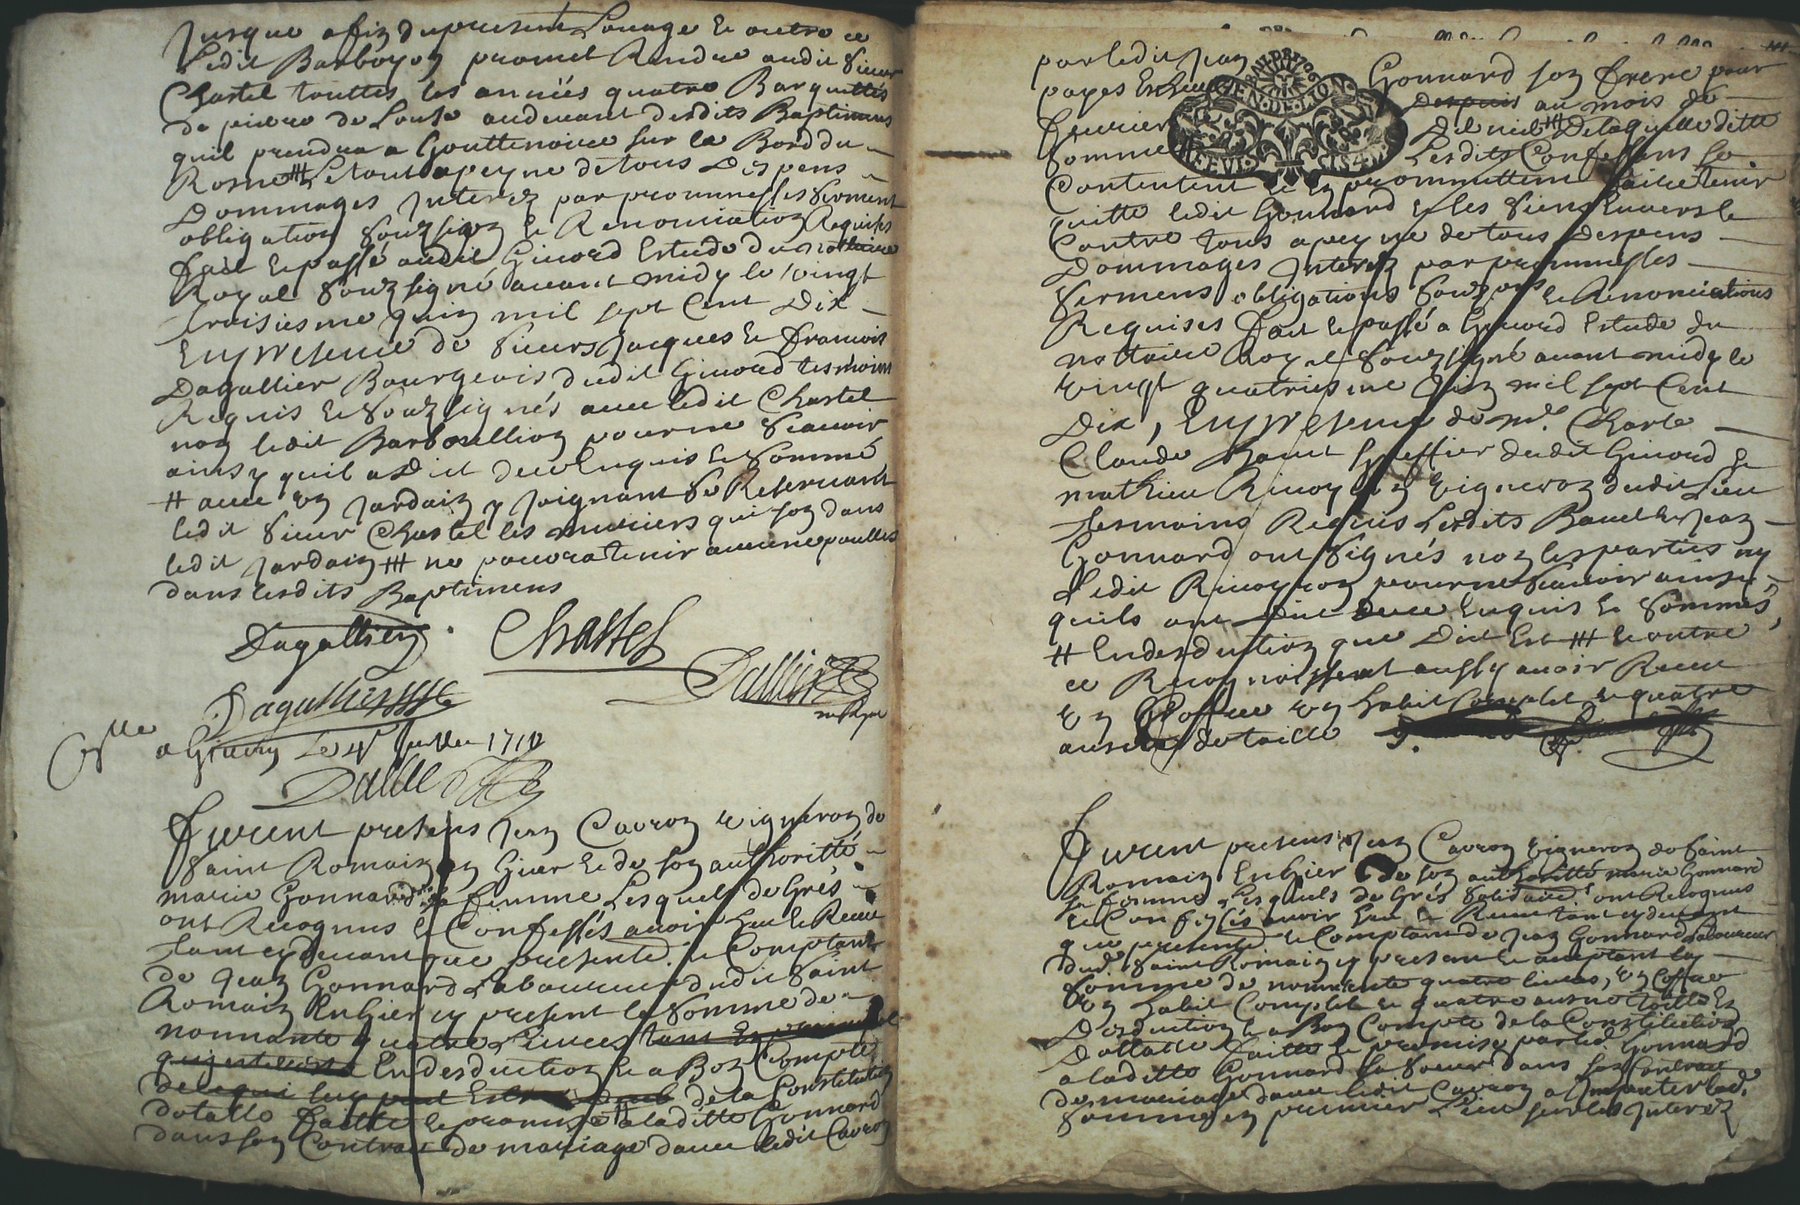 Jusque a fin du present Louage et outre ce
Ledit Barboyon promet Rendre audit Sieur
Chastel touttes les années quatre Barquettes
de pierre de Louse audevant desdits Baptimens
quil prendra a Gouttenoire sur le Bord du
Rosne Le tout a peyne de tous Despens
Dommages Interez par promesses serment
obligation souzsigon et Renonciation Requises
Fait et passé audit Givord Estude du nottaire
Royal souzsigné avant midy le vingt
troisiesme juin mil sept Cent Dix
En presence de sieurs Jacques et Francois
Dagallier Bourgeois dudit Givord tesmoins
Requis et souzsignés avec ledit Chastel
non ledit Barboullion pour ne scavoir
ainsy quil a Dit dece Enquis et sommé
# avec un Jardain y Joignant se Reservant
ledit sieur Chastel les muriers qui son dans
ledit Jardain ne pourra tenir aucune poulles
dans lesdits Baptimens
Dagallier Chastel
Dallier
Dagallier
Clle a Givors Le 4e Juillet 1710
Furent presens Jean Cavron vigneron de
Saint Romain en Gier et de son authoritté
marie Gonnard sa femme Lesquels de Grés
ont Recognus et Confessés avoir heu et Receu
tant cy devant que presente. et Comptant
de Jean Gonnard Laboureur dudit Saint
Romain En Gier cy present la somme de
nonnante quatre Livres tant En principal
En desduction et a Bon Compte
de la Constitution
dotalle faitte et promise a laditte Gonnard
dans son Contrat de mariage davec ledit Cavron
par ledit Jean Gonnard son frere pour
payes Escheue despuis au mois de
fevrier Dernier De laquelle ditte
somme Lesdits Confessans se
Contentent et en promettent faire tenir
quitte ledit Gonnard et les siens Envers le
Contre tous a peyne de tous Despens
Dommages Interez par prommesses
sermens obligations souzons et Renonciations
Requises Fait et passé a Givord Estude du
nottaire Royal souzsigné avant midy le
vingt quatriesme Juin mil sept Cent
Dix, En presence de Mre. Charle
Claude Bauet Greffier dudit Givord et
mathieu Ricoyron vigneron dudit Lieu
tesmoins Requis Lesdits Bauet et Jean
Gonnard ont signés non les parties ny
Ledit Ricoyron pour ne scavoir ainsy
quils ont Dit de ce Enquis et sommés,
# En desduction que Dict Est et outre
ce Recognoissent aussy avoir Receu
un Coffre un habit Complet et quatre
aunes de toille
Furent presens Jean Cavron vigneron de Saint
Romain En Gier et de son authoritté marie Gonnard
sa femme Lesquels de Grés solidaire ont Recognus
et Confessés avoir heu et Receu tant cy devant
que presente. et Comptant de Jean Gonnard Laboureur
dud. Saint Romain cy present et acceptant la
somme de nonnante quatre livres, un Coffre
un habit Complet et quatre aunes toille En
Desduction et a Bon Compte de la Constitution
Dottalle faitte et promise par led. Gonnard
a laditte Gonnard sa soeur dans son Contrat
de mariage davec ledit Cavron a Imputer lad.
somme en premier Lieu sur les Interez